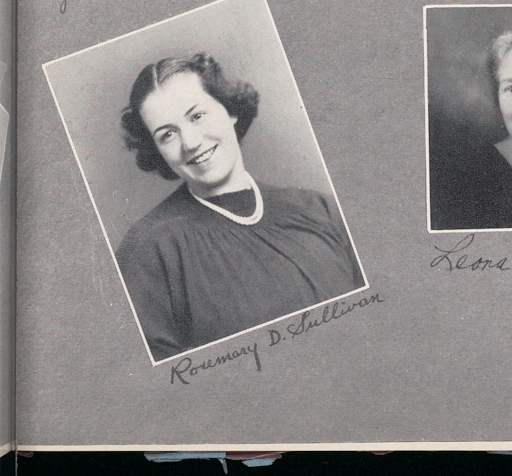 Rosemary D. Sullivan
Leona